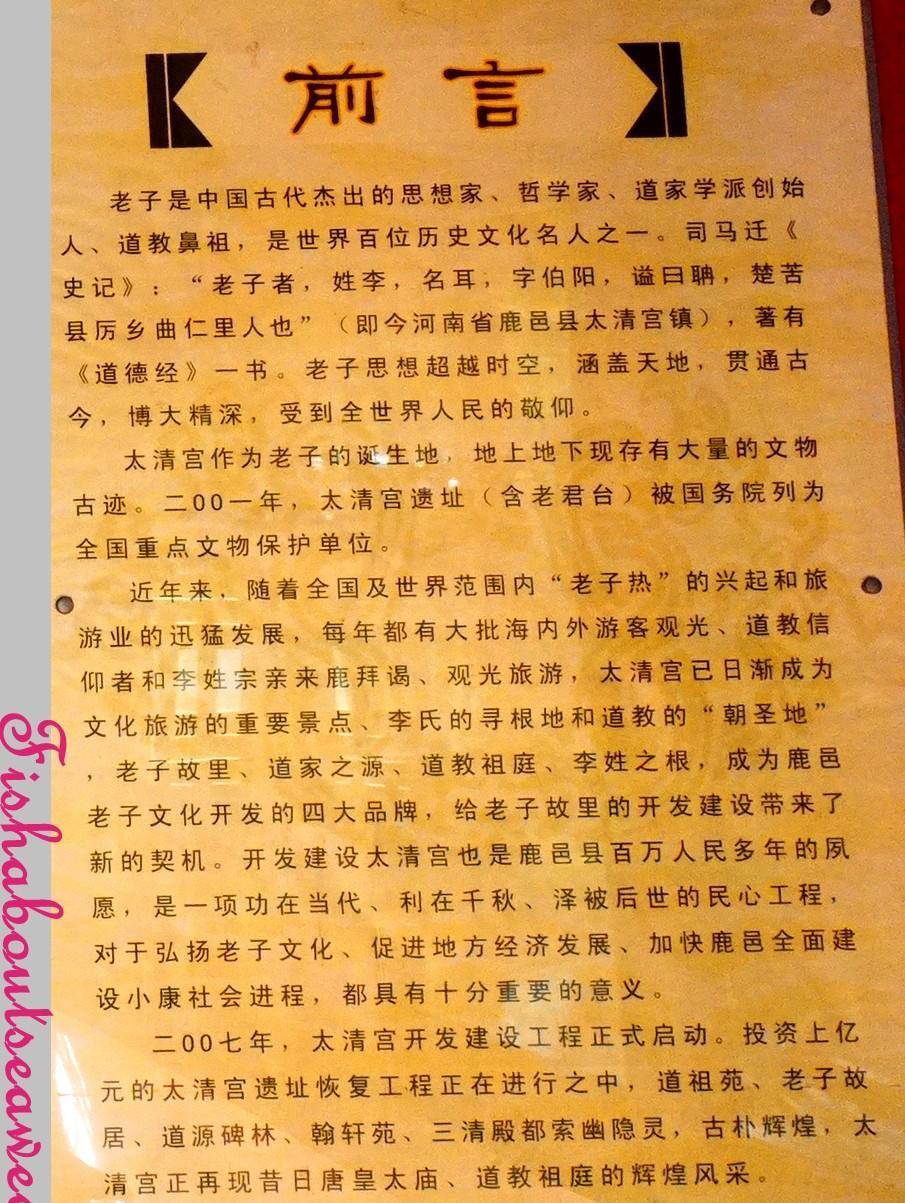 前言
老子是中国古代杰出的思想家、哲学家、道家学派创始
人、道教鼻祖，是世界百位历史文化名人之一。司马迁《
史记》：“老子者，姓李，名耳，字伯阳，谥曰聃，楚苦
县厉乡曲仁里人也”（即今河南省鹿邑县太清宫镇），著有
《道德经》一书。老子思想超越时空，涵盖天地，贯通古
今，博大精深，受到全世界人民的敬仰。
太清宫作为老子的诞生地，地上地下现存有大量的文物
古迹。二00一年，太清宫遗址（含老君台）被国务院列为
全国重点文物保护单位。
近年来，随着全国及世界范围内“老子热”的兴起和旅
游业的迅猛发展，每年都有大批海内外游客观光、道教信
仰者和李姓宗亲来鹿拜谒、观光旅游，太清宫已日渐成为
文化旅游的重要景点、李氏的寻根地和道教的“朝圣地”
，老子故里、道家之源、道教祖庭、李姓之根，成为鹿邑
老子文化开发的四大品牌，给老子故里的开发建设带来了
新的契机。开发建设太清宫也是鹿邑县百万人民多年的夙
愿，是一项功在当代、利在千秋、泽被后世的民心工程，
对于弘扬老子文化、促进地方经济发展、加快鹿邑全面建
设小康社会进程，都具有十分重要的意义。
二00七年，太清宫开发建设工程正式启动。投资上亿
元的太清宫遗址恢复工程正在进行之中，道祖苑、老子故
居、道源碑林、翰轩苑、三清殿都索幽隐灵，古朴辉煌，太
清宫正再现昔日唐皇太庙、道教祖庭的辉煌风采。
Fishaboutseawe